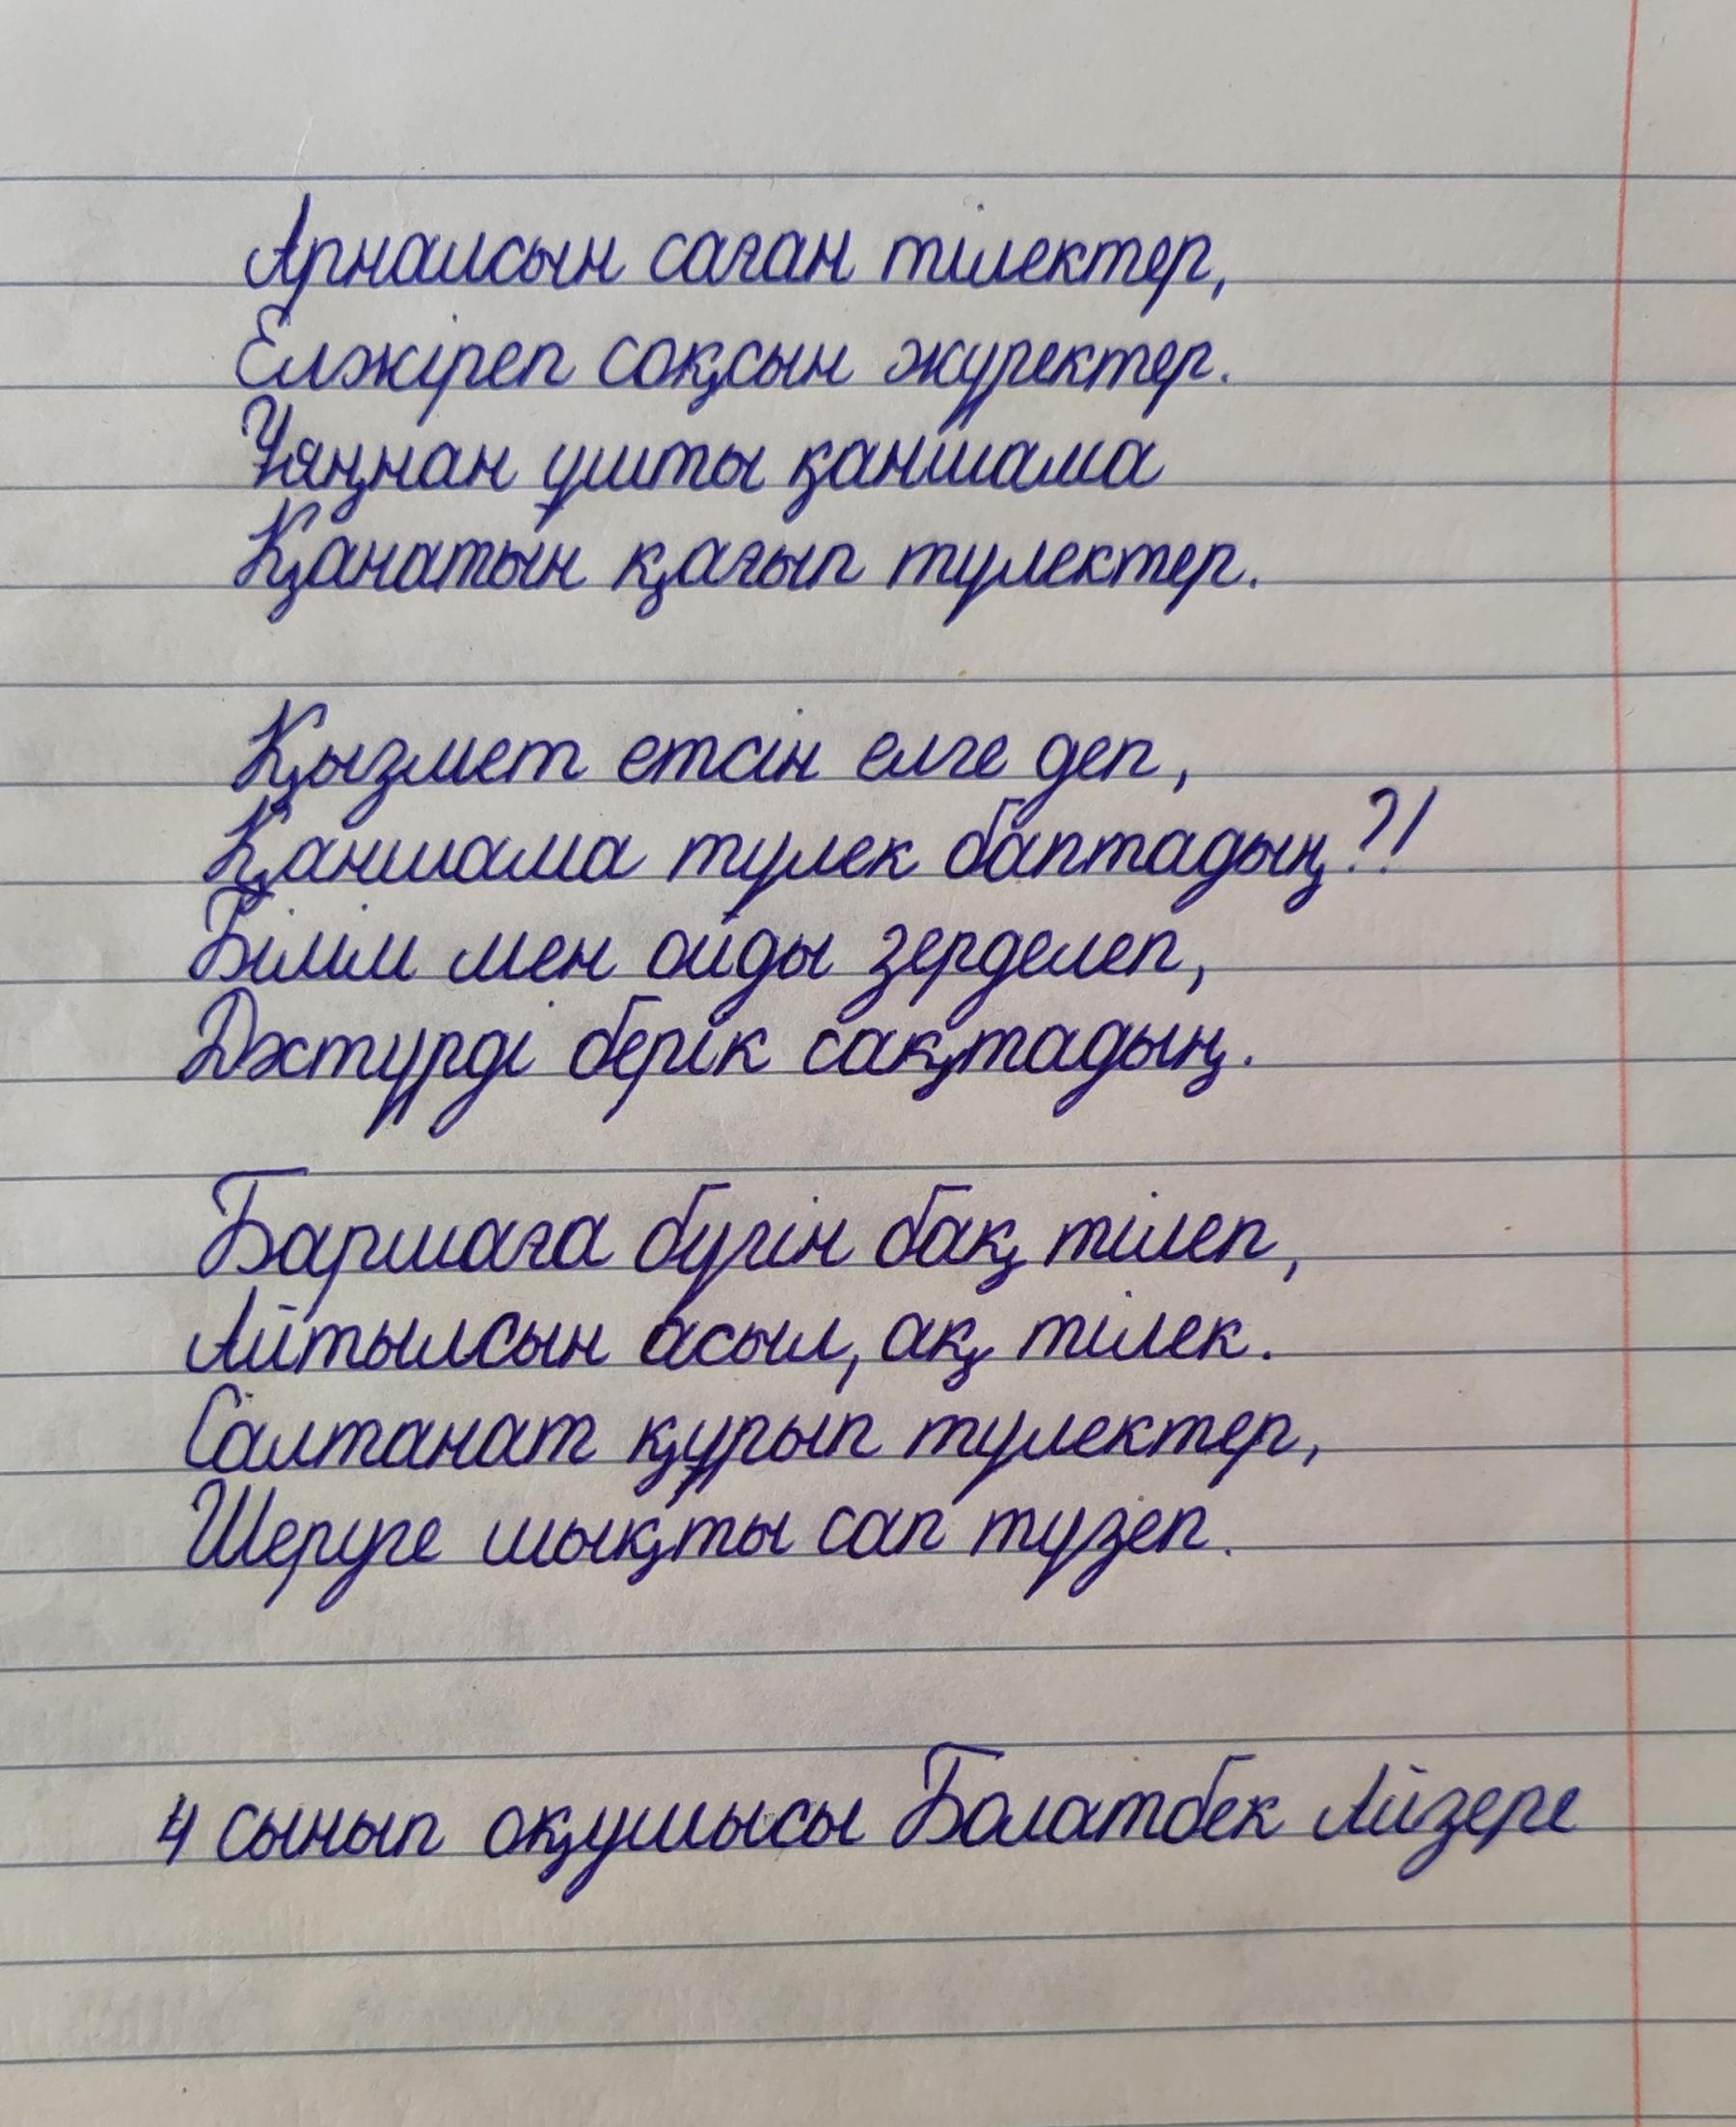 Арналсын саған тілектер,
Елжіреп соқсын жүректер.
Ұяңнан ұшты қаншама
Қанатын қағып түлектер.
Қызмет етсін елге деп,
Қаншама түлек баптадың?!
Білім мен ойды зерделеп,
Дәстүрді берік сақтадың.
Баршаға бүгін бақ тілеп,
Айтылсын асыл, ақ тілек.
Салтанат құрып түлектер,
Шеруге шықты сап түзеп.
4 сынып оқушысы Болатбек Айзере